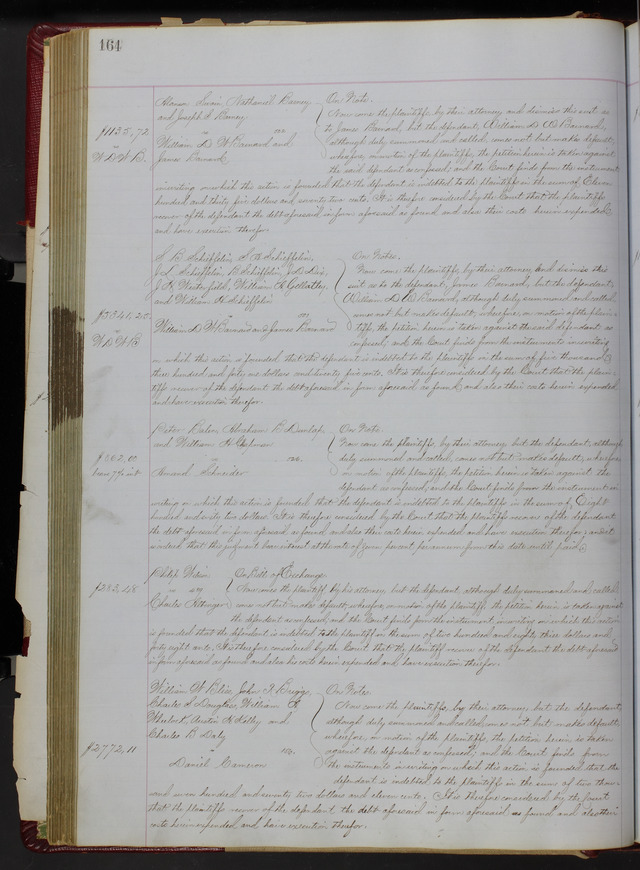 164
Swain, Nathaniel Barney
and Joseph S. Barney
vs
William D. W Barnard and
James Barnard
$1135.72
W D W B.
On Note.
Now come the plaintiffs by their attorney and dismiss this suit as
to James Barnard, but the defendant, William D W Barnard,
although duly summoned and called, comes not but makes default,
wherefore, on motion of the plaintiffs, the petition herein is taken against
the said defendant as confessed; and the Court finds from the instrument
in writing on which this action is founded that the defendant is indebted to the plaintiffs in the sum of Eleven
hundred and thirty five dollars and seventy two cents. It is therefore considered by the Court that the plaintiffs
recover of the defendant the debt aforesaid in form aforesaid as found and also their costs herein expended
and have execution therefor.
S. B. Schieffelin, S. H Schieffelin,
B Schieffelin,
William
and William H. Schieffelin
vs
William D W Barnard and James Barnard
W D W B
On Notes.
Now come the plaintiffs by their attorney and dismiss this
suit as to the defendant, James Barnard, but the defendant,
William D W Barnard, although duly summoned and called,
comes not but makes default, wherefore, on motion of the plain-
tiffs, the petition herein is taken against the said defendant as
confessed, and the Court finds from the instruments in writing
on which this action is founded that the defendant is indebted to the plaintiffs in the sum of five thousand
three hundred and forty one dollars and twenty five cents. It is therefore considered by the Court that the plain-
tiffs recover of the defendant the debt aforesaid in form aforesaid as found and also their costs herein expended
and have execution therefor.
Peter Abraham B Dunlap,
and William H
vs.
Schneider
$802.00
On Note.
Now come the plaintiffs, by their attorney, but the defendant, although
duly summoned and called, comes not but makes default; wherefore
on motion of the plaintiffs, the petition herein is taken against the
defendant as confessed, and the Court finds from the instrument in
writing on which this action is founded that the defendant is indebted to the plaintiffs in the sum of Eight
hundred and two dollars. It is therefore considered by the Court that the plaintiffs recover of the defendant
the debt aforesaid in form aforesaid as found, and also their costs herein expended and have execution therefor; and it
is ordered that this judgment bear interest at the rate of per cent per annum from this date until paid.
Philip
vs
Charles
$283.48
On Bill of Exchange.
Now comes the plaintiff by his attorney, but the defendant, although duly summoned and called,
comes not but makes default; wherefore, on motion of the plaintiff, the petition herein is taken against
the defendant as confessed, and the Court finds from the instrument in writing on which this action
is founded that the defendant is indebted to the plaintiff in the sum of two hundred and eighty three dollars and
forty eight cents. It is therefore considered by the Court that the plaintiff recover of the defendant the debt aforesaid
in form aforesaid as found and also his costs herein expended and have execution therefor.
William W Bliss, John R Briggs,
Charles S Douglass, William
Austin H Kelly and
Charles B Daly
vs.
Daniel Cameron
$2772.11
On Notes.
Now come the plaintiffs, by their attorney, but the defendant
although duly summoned and called, comes not but makes default;
wherefore, on motion of the plaintiffs, the petition herein is taken
against the defendant as confessed, and the Court finds from
the instruments in writing on which this action is founded that the
defendant is indebted to the plaintiffs in the sum of two thous-
and seven hundred and seventy two dollars and eleven cents. It is therefore considered by the Court
that the plaintiffs recover of the defendant the debt aforesaid in form aforesaid as found and also their
costs herein expended, and have execution therefor.